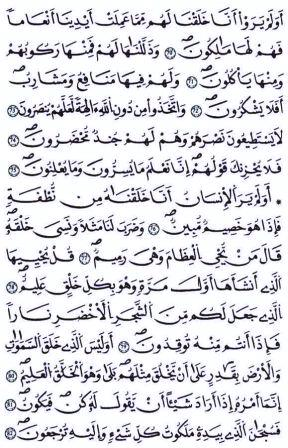 أَوَلَمْ يَرَوْا أَنَّا خَلَقْنَا لَهُم مِّمَّا عَمِلَتْ أَيْدِينَا أَنْعَٰمًا
فَهُمْ لَهَا مَٰلِكُونَ وَذَلَّلْنَٰهَا لَهُمْ فَمِنْهَا رَكُوبُهُمْ
وَمِنْهَا يَأْكُلُونَ وَلَهُمْ فِيهَا مَنَٰفِعُ وَمَشَارِبُ
أَفَلَا يَشْكُرُونَ وَاتَّخَذُوا مِن دُونِ اللَّهِ ءَالِهَةً لَّعَلَّهُمْ يُنصَرُونَ
لَا يَسْتَطِيعُونَ نَصْرَهُمْ وَهُمْ لَهُمْ جُندٌ مُّحْضَرُونَ
فَلَا يَحْزُنكَ قَوْلُهُمْ إِنَّا نَعْلَمُ مَا يُسِرُّونَ وَمَا يُعْلِنُونَ
أَوَلَمْ يَرَ الْإِنسَٰنُ أَنَّا خَلَقْنَٰهُ مِن نُّطْفَةٍ
فَإِذَا هُوَ خَصِيمٌ مُّبِينٌ وَضَرَبَ لَنَا مَثَلًا وَنَسِيَ خَلْقَهُ
قَالَ مَن يُحْيِ الْعِظَٰمَ وَهِيَ رَمِيمٌ قُلْ يُحْيِيهَا
الَّذِي أَنشَأَهَا أَوَّلَ مَرَّةٍ وَهُوَ بِكُلِّ خَلْقٍ عَلِيمٌ
الَّذِي جَعَلَ لَكُم مِّنَ الشَّجَرِ الْأَخْضَرِ نَارًا
فَإِذَا أَنتُم مِّنْهُ تُوقِدُونَ أَوَلَيْسَ الَّذِي خَلَقَ السَّمَٰوَٰتِ
وَالْأَرْضَ بِقَٰدِرٍ عَلَىٰ أَن يَخْلُقَ مِثْلَهُم بَلَىٰ وَهُوَ الْخَلَّٰقُ الْعَلِيمُ
إِنَّمَا أَمْرُهُ إِذَا أَرَادَ شَيْـًٔا أَن يَقُولَ لَهُ كُن فَيَكُونُ
فَسُبْحَٰنَ الَّذِي بِيَدِهِ مَلَكُوتُ كُلِّ شَيْءٍ وَإِلَيْهِ تُرْجَعُونَ